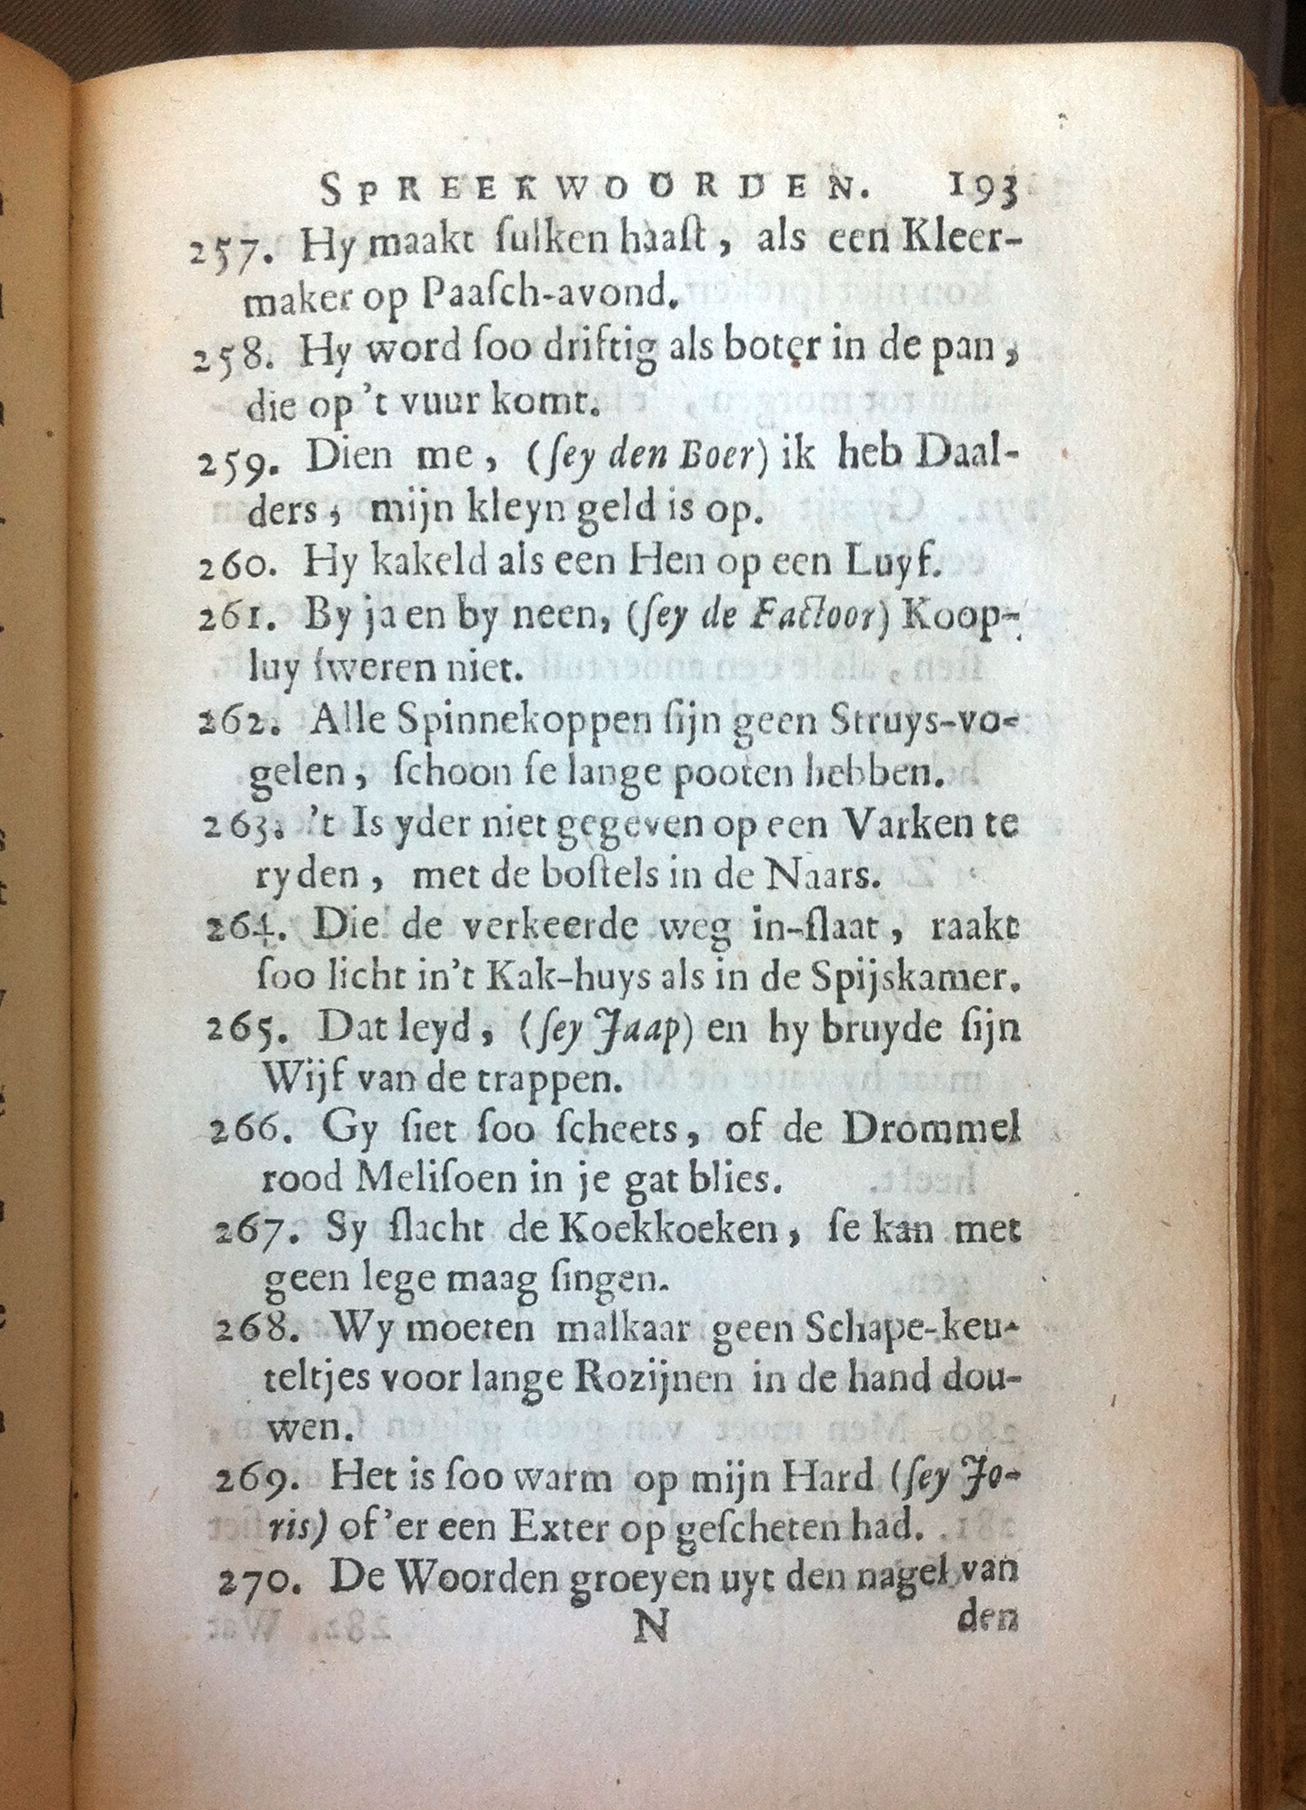 SPREEKWOORDEN. 193
257. Hy maakt ſulken haaſt, als een Kleer-
maker op Paaſch-avond.
258. Hy word ſoo driftig als boter in de pan,
die op 't vuur komt.
259. Dien me, (ſey den Boer) ik heb Daal-
ders, mijn kleyn geld is op.
260. Hy kakeld als een Hen op een Luyf.
261. By ja en by neen, (ſey de Factoor) Koop-
luy ſweren niet.
262. Alle Spinnekoppen ſijn geen Struys-vo-
gelen, ſchoon ſe lange pooten hebben.
263. 't Is yder niet gegeven op een Varken te
ryden, met de boſtels in de Naars.
264. Die de verkeerde weg in-ſlaat, raakt
ſoo licht in't Kak-huys als in de Spijskamer.
265. Dat leyd, (ſey Jaap) en hy bruyde ſijn
Wijf van de trappen.
266. Gy ſiet ſoo ſcheets, of de Drommel
rood Meliſoen in je gat blies.
267. Sy ſlacht de Koekkoeken, ſe kan met
geen lege maag ſingen.
268. Wy moeten malkaar geen Schape-keu-
teltjes voor lange Rozijnen in de hand dou-
wen.
269. Het is ſoo warm op mijn Hard (ſey Jo-
ris) of 'er een Exter op geſcheten had.
270. De Woorden groeyen uyt den nagel van
N den